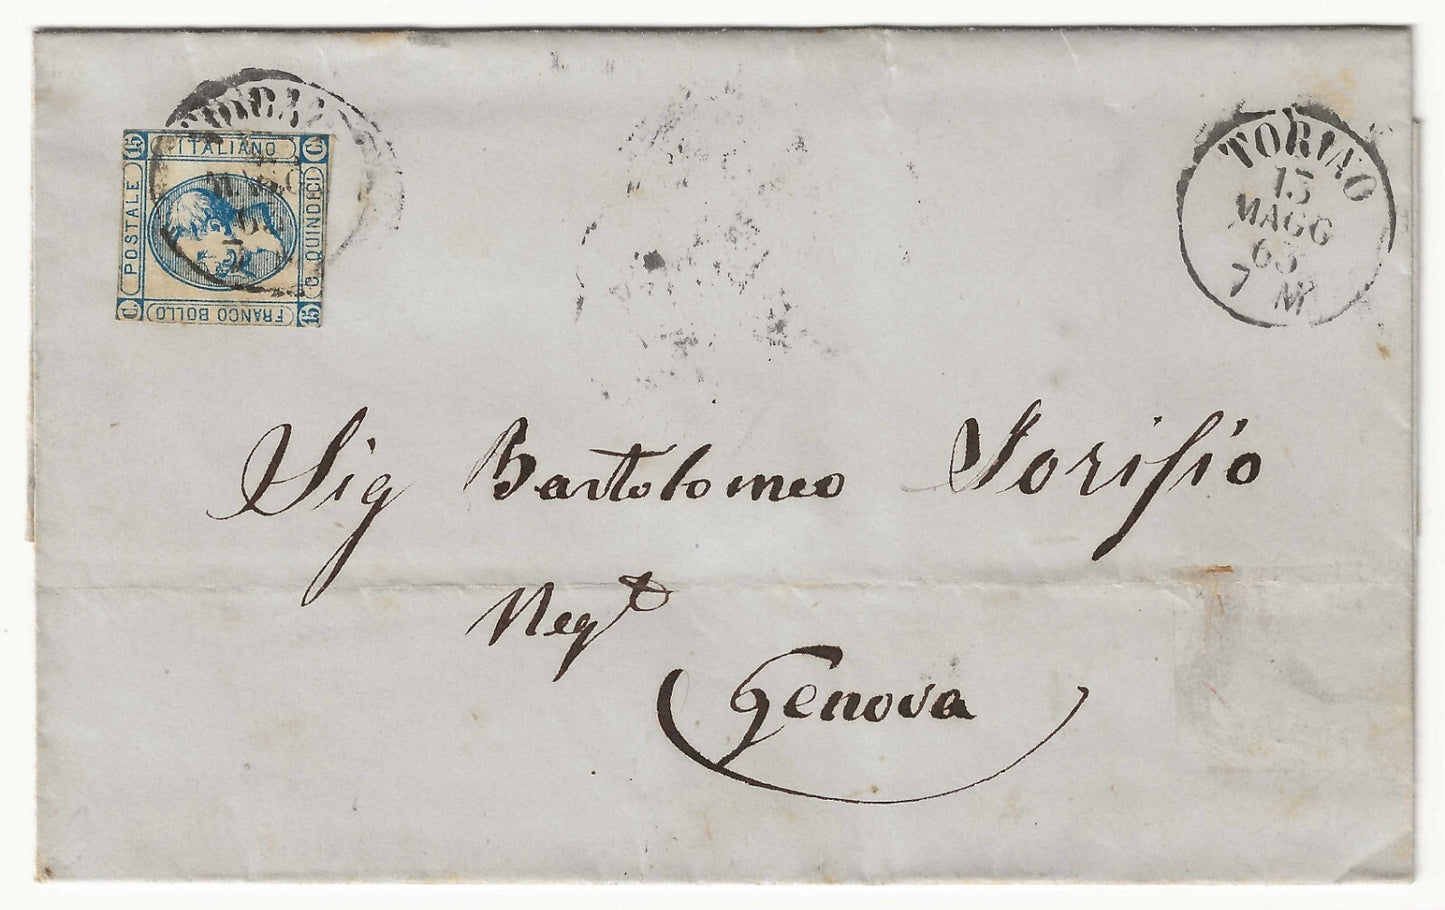 15
ITALIANO
C.
POSTALE
C. QUINDICI
C.
FRANCO BOLLO
15
TORINO
13
MAGG
63
7 M
Sig Bartolomeo Sorisio
Negt
Genova